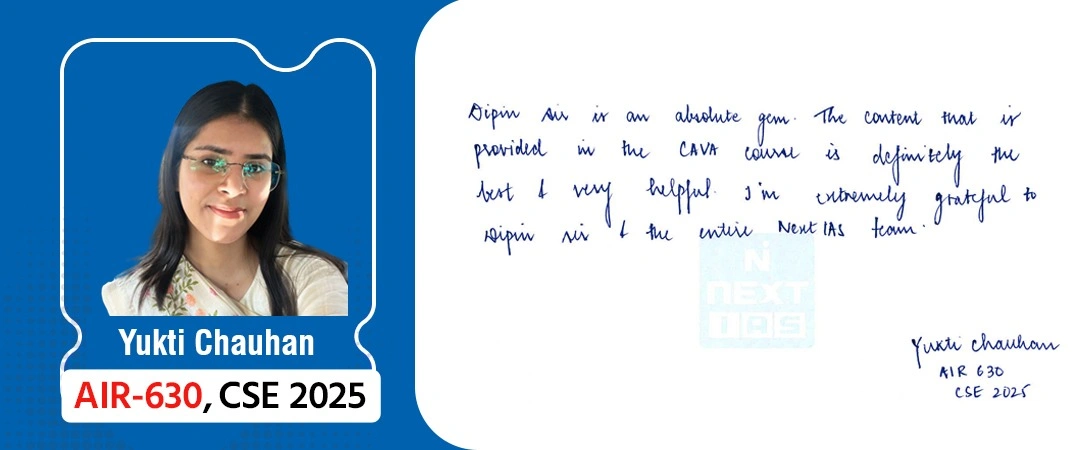 Yukti Chauhan
AIR-630, CSE 2025
Dipin sir is an absolute gem. The content that is
provided in the CAVA course is definitely the
best & very helpful. I'm extremely grateful to
Dipin sir & the entire Next IAS team.
N
NEXT
IAS
Yukti Chauhan
AIR 630
CSE 2025